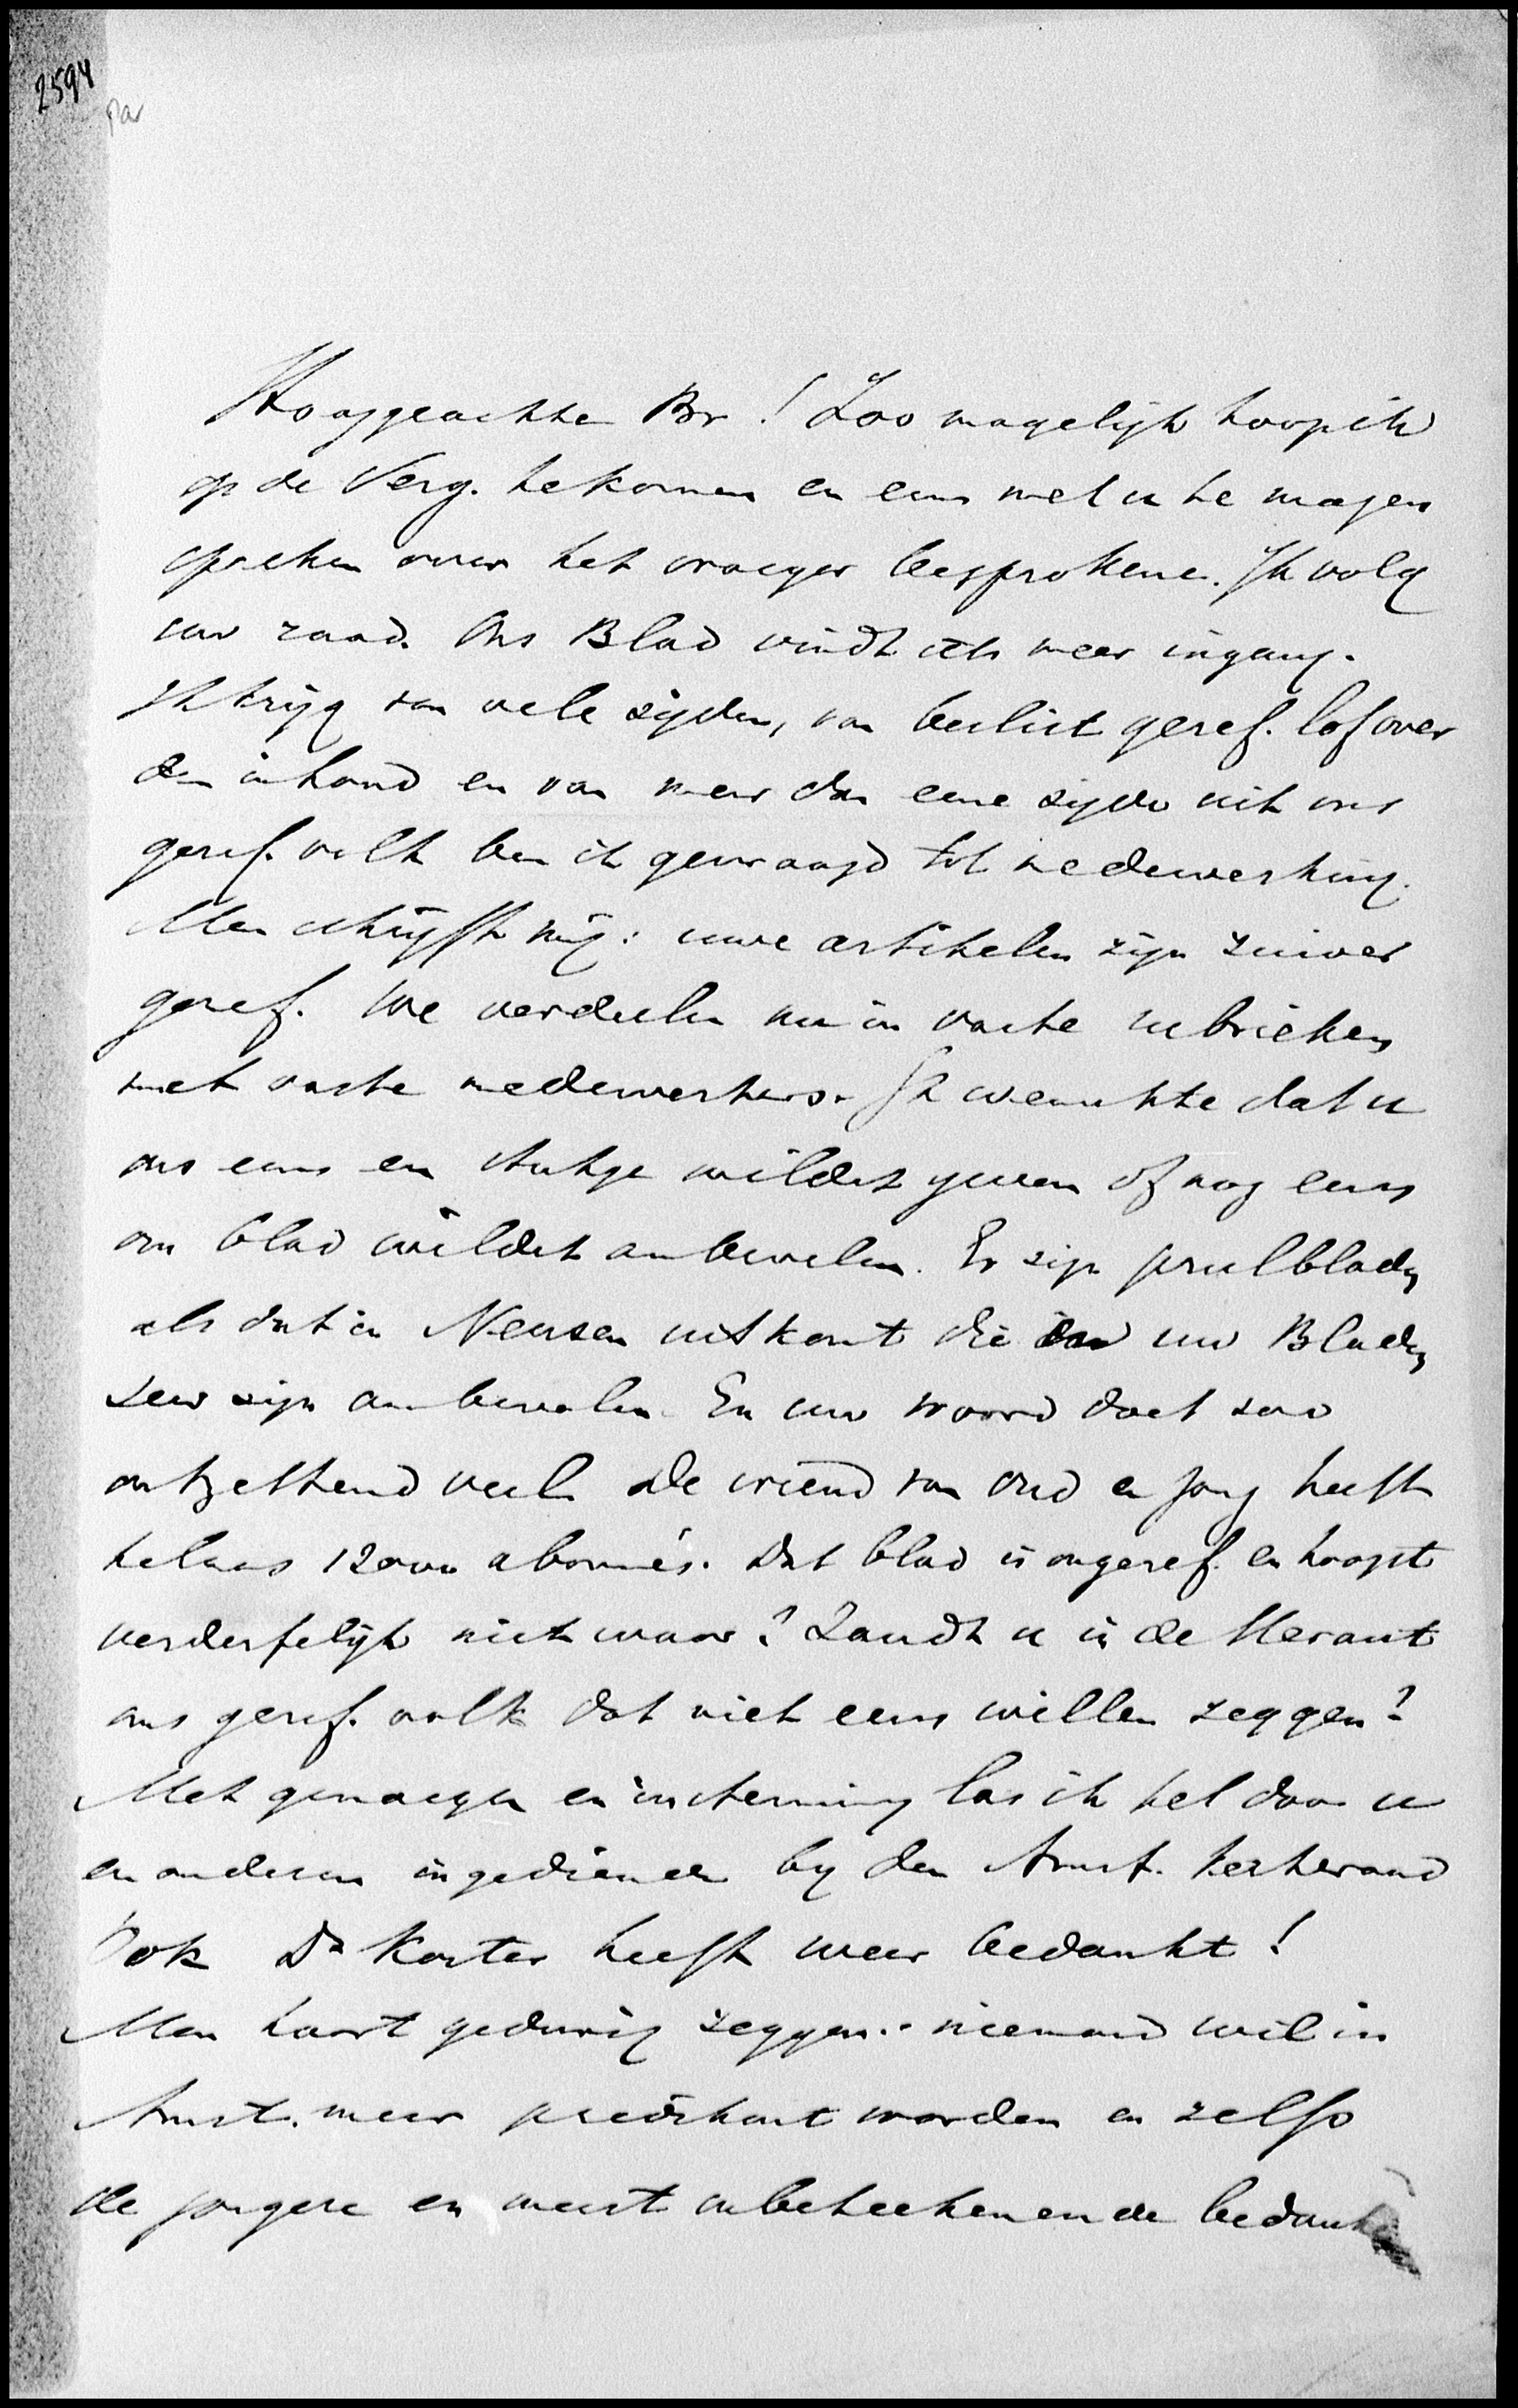 2594
par
Hooggeachte Br! Zoo mogelijk hoop ik
op de Verg. te komen en eens met u te mogen
spreken over het vroeger besprokene. Ik volg
uw raad. Ons Blad vindt iets meer ingang.
Ik krijg van vele zijden, van beslist geref. lof over
den inhoud en van meer dan eene zijde uit ons
geref. volk ben ik gevraagd tot medewerking.
Men schrijft mij: uwe artikelen zijn zuiver
geref. We verdeelen nu in vaste rubrieken
met vaste medewerkers. Ik wenschte dat u
ons eens een stukje wildet geven of nog eens
ons blad wildet aanbevelen. Er zijn prulbladen
als dat in Neusen uitkomt die in uw Bladen
zeer zijn aanbevolen. En uw woord doet zoo
ontzettend veel. De vriend van Oud en Jong heeft
helaas 12000 abonnés. Dat blad is ongeref. en hoogst
verderfelijk niet waar? Zoudt u in de Heraut
ons geref. volk dat niet eens willen zeggen?
Met genoegen en instemming las ik het door u
en anderen ingediende bij den Amst. kerkeraad
Ook Ds Koster heeft weer bedankt!
Men hoort gedurig zeggen: niemand wil in
Amst. meer predikant worden en zelfs
de jongere en meest onbeteekenende bedanken